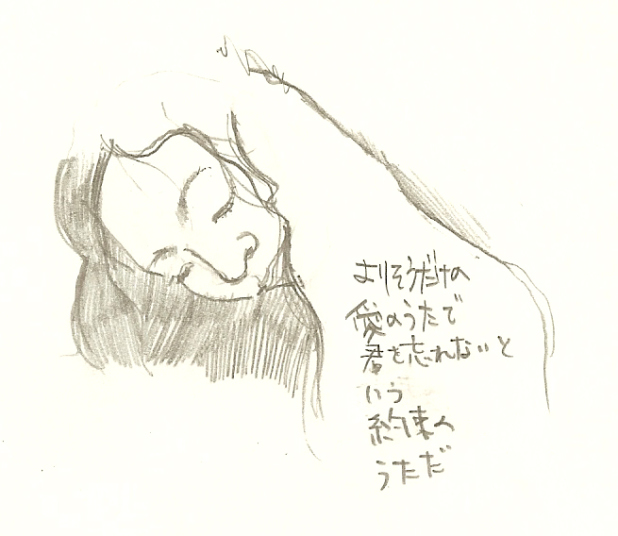 よりそうだけの
愛のうたで
君を忘れないと
いう
約束の
うただ